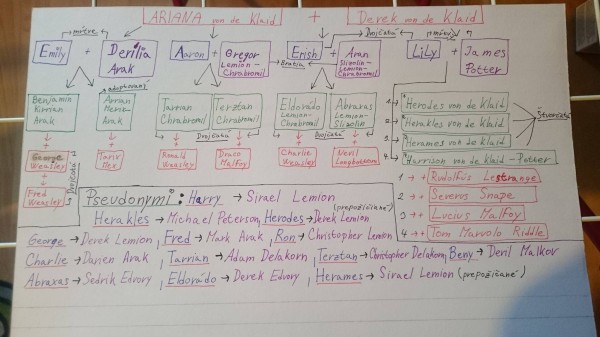 ARIANA von de Klaid + Derek von de Klaid
mŕtve Dvojčatá mŕtvy
Emily + Derilia Arak
Aaron + Gregor Lemion-Chrabromil
Bratia
Erish + Aran Slizolin-Lemion-Chrabromil
LiLy + James Potter
adoptovaný
Benjamin Kirrian Arak
Arran Arak
Tarrian Chrabromil
Terztan Chrabromil
Dvojčatá
Eldorádo Lemion-Chrabromil
Abraxas Lemion-Slizolin
Dvojčatá
1. Herodes von de Klaid
2. Herakles von de Klaid
3. Herames von de Klaid
4. Harrison von de Klaid - Potter
Štvorčatá
George Weasley
Fred Weasley
Dvojčatá
Ronald Weasley
Draco Malfoy
Charlie Weasley
Nevil Longbottom
1 → + Rudolfus Lestrange
2 → + Severus Snape
3 → + Lucius Malfoy
4 → + Tom Marvolo Riddle
Pseudonymi: Harry → Sirael Lemion (prepožičiané)
Herakles → Michael Peterson, Herodes → Derek Lemion
George → Derek Lemion, Fred → Mark Arak, Ron → Christopher Lemion
Charlie → Darien Arak, Tarrian → Adam Delakorn, Terztan → Christopher Delakorn, Beny → Deril Malkov
Abraxas → Sedrik Edvory, Eldorádo → Derek Edvory, Herames → Sirael Lemion (prepožičiané)